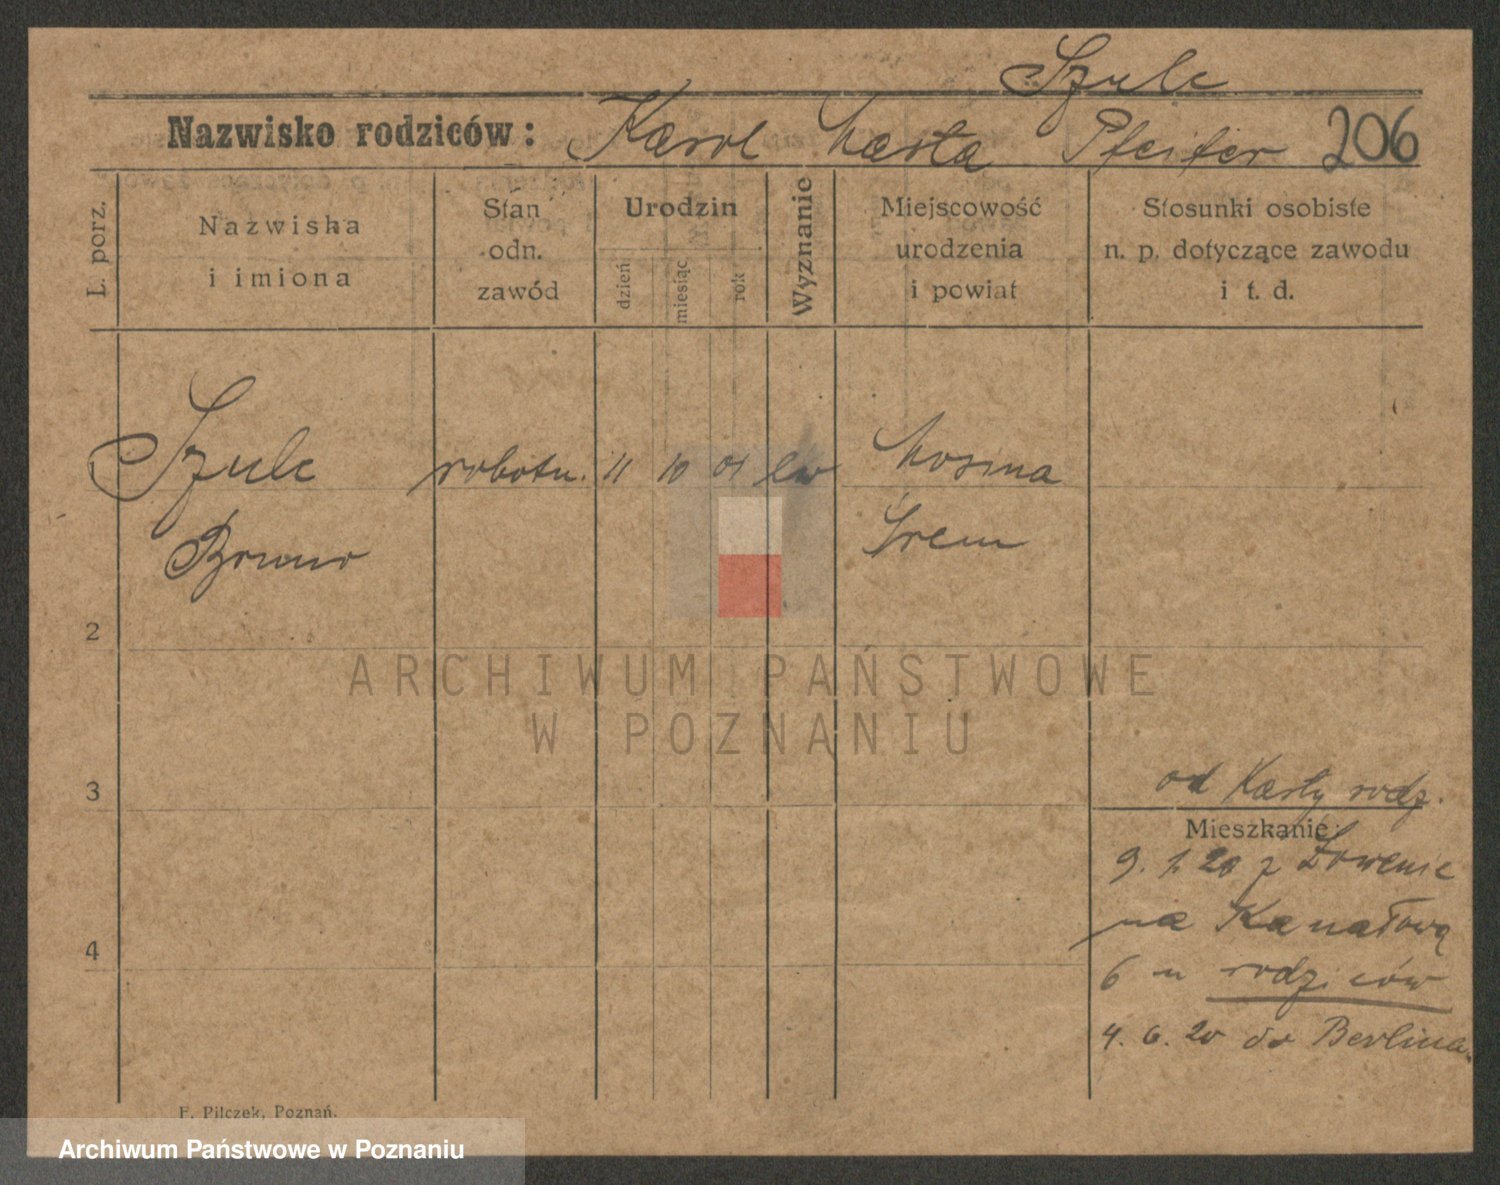 Szulc
Nazwisko rodziców: Karol Marta Pfeifer 206
L. porz.
Nazwiska
i imiona
Stan
odn.
zawód
Urodzin
dzień
miesiąc
rok
Wyznanie
Miejscowość
urodzenia
i powiat
Stosunki osobiste
n. p. dotyczące zawodu
i t. d.
Szulc robotn. 11 10 01 ew Mosina
Bruno Śrem
2
ARCHIWUM PAŃSTWOWE
W POZNANIU
3
od Karty rodz.
Mieszkanie:
9. 1. 20 z
na Kanałową
4
6 u rodziców
4. 6. 20 do Berlina
F. Pilczek, Poznań.
Archiwum Państwowe w Poznaniu